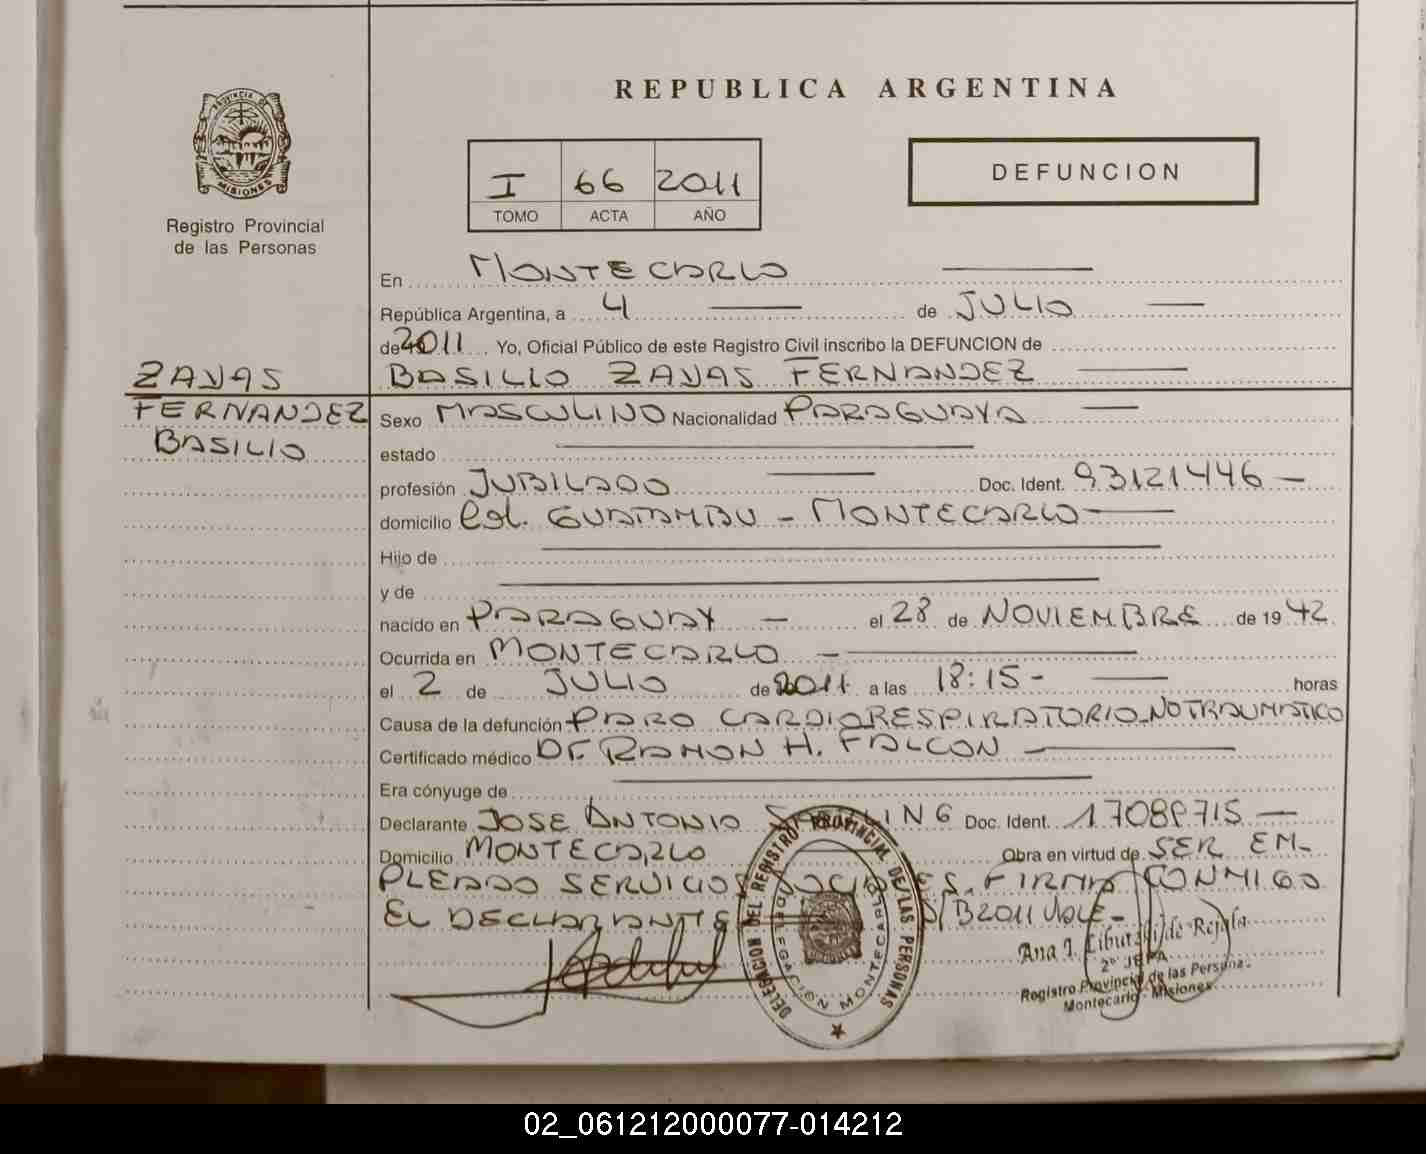 REPUBLICA ARGENTINA
PROVINCIA DE
MISIONES
Registro Provincial
de las Personas
I 66 2011
TOMO ACTA AÑO
DEFUNCION
En MONTECARLO
República Argentina, a 4 de JULIO
de 2011 Yo, Oficial Público de este Registro Civil inscribo la DEFUNCION de
ZAYAS BASILIO ZAYAS FERNANDEZ
FERNANDEZ Sexo MASCULINO Nacionalidad PARAGUAYA
BASILIO
estado
profesión JUBILADO Doc. Ident. 93121446
domicilio Col. GUATAMBU - MONTECARLO
Hijo de
y de
nacido en PARAGUAY el 28 de NOVIEMBRE de 1942
Ocurrida en MONTECARLO
el 2 de JULIO de 2011 a las 18:15 - horas
Causa de la defunción PARO CARDIORESPIRATORIO NO TRAUMATICO
Certificado médico Dr. RAMON H. FALCON
Era cónyuge de
Declarante JOSE ANTONIO Doc. Ident. 17089715
Domicilio MONTECARLO Obra en virtud de SER EM-
PLEADO SERVICIOS SOCIALES. FIRMA CONMIGO
EL DECLARANTE S/B 2011 VALE -
DELEGACION DEL REGISTRO PROVINCIAL DE LAS PERSONAS
DELEGACION MONTECARLO
Ana I. de Rejala
2º JEFA
Registro Provincial de las Personas
Montecarlo - Misiones
02_061212000077-014212